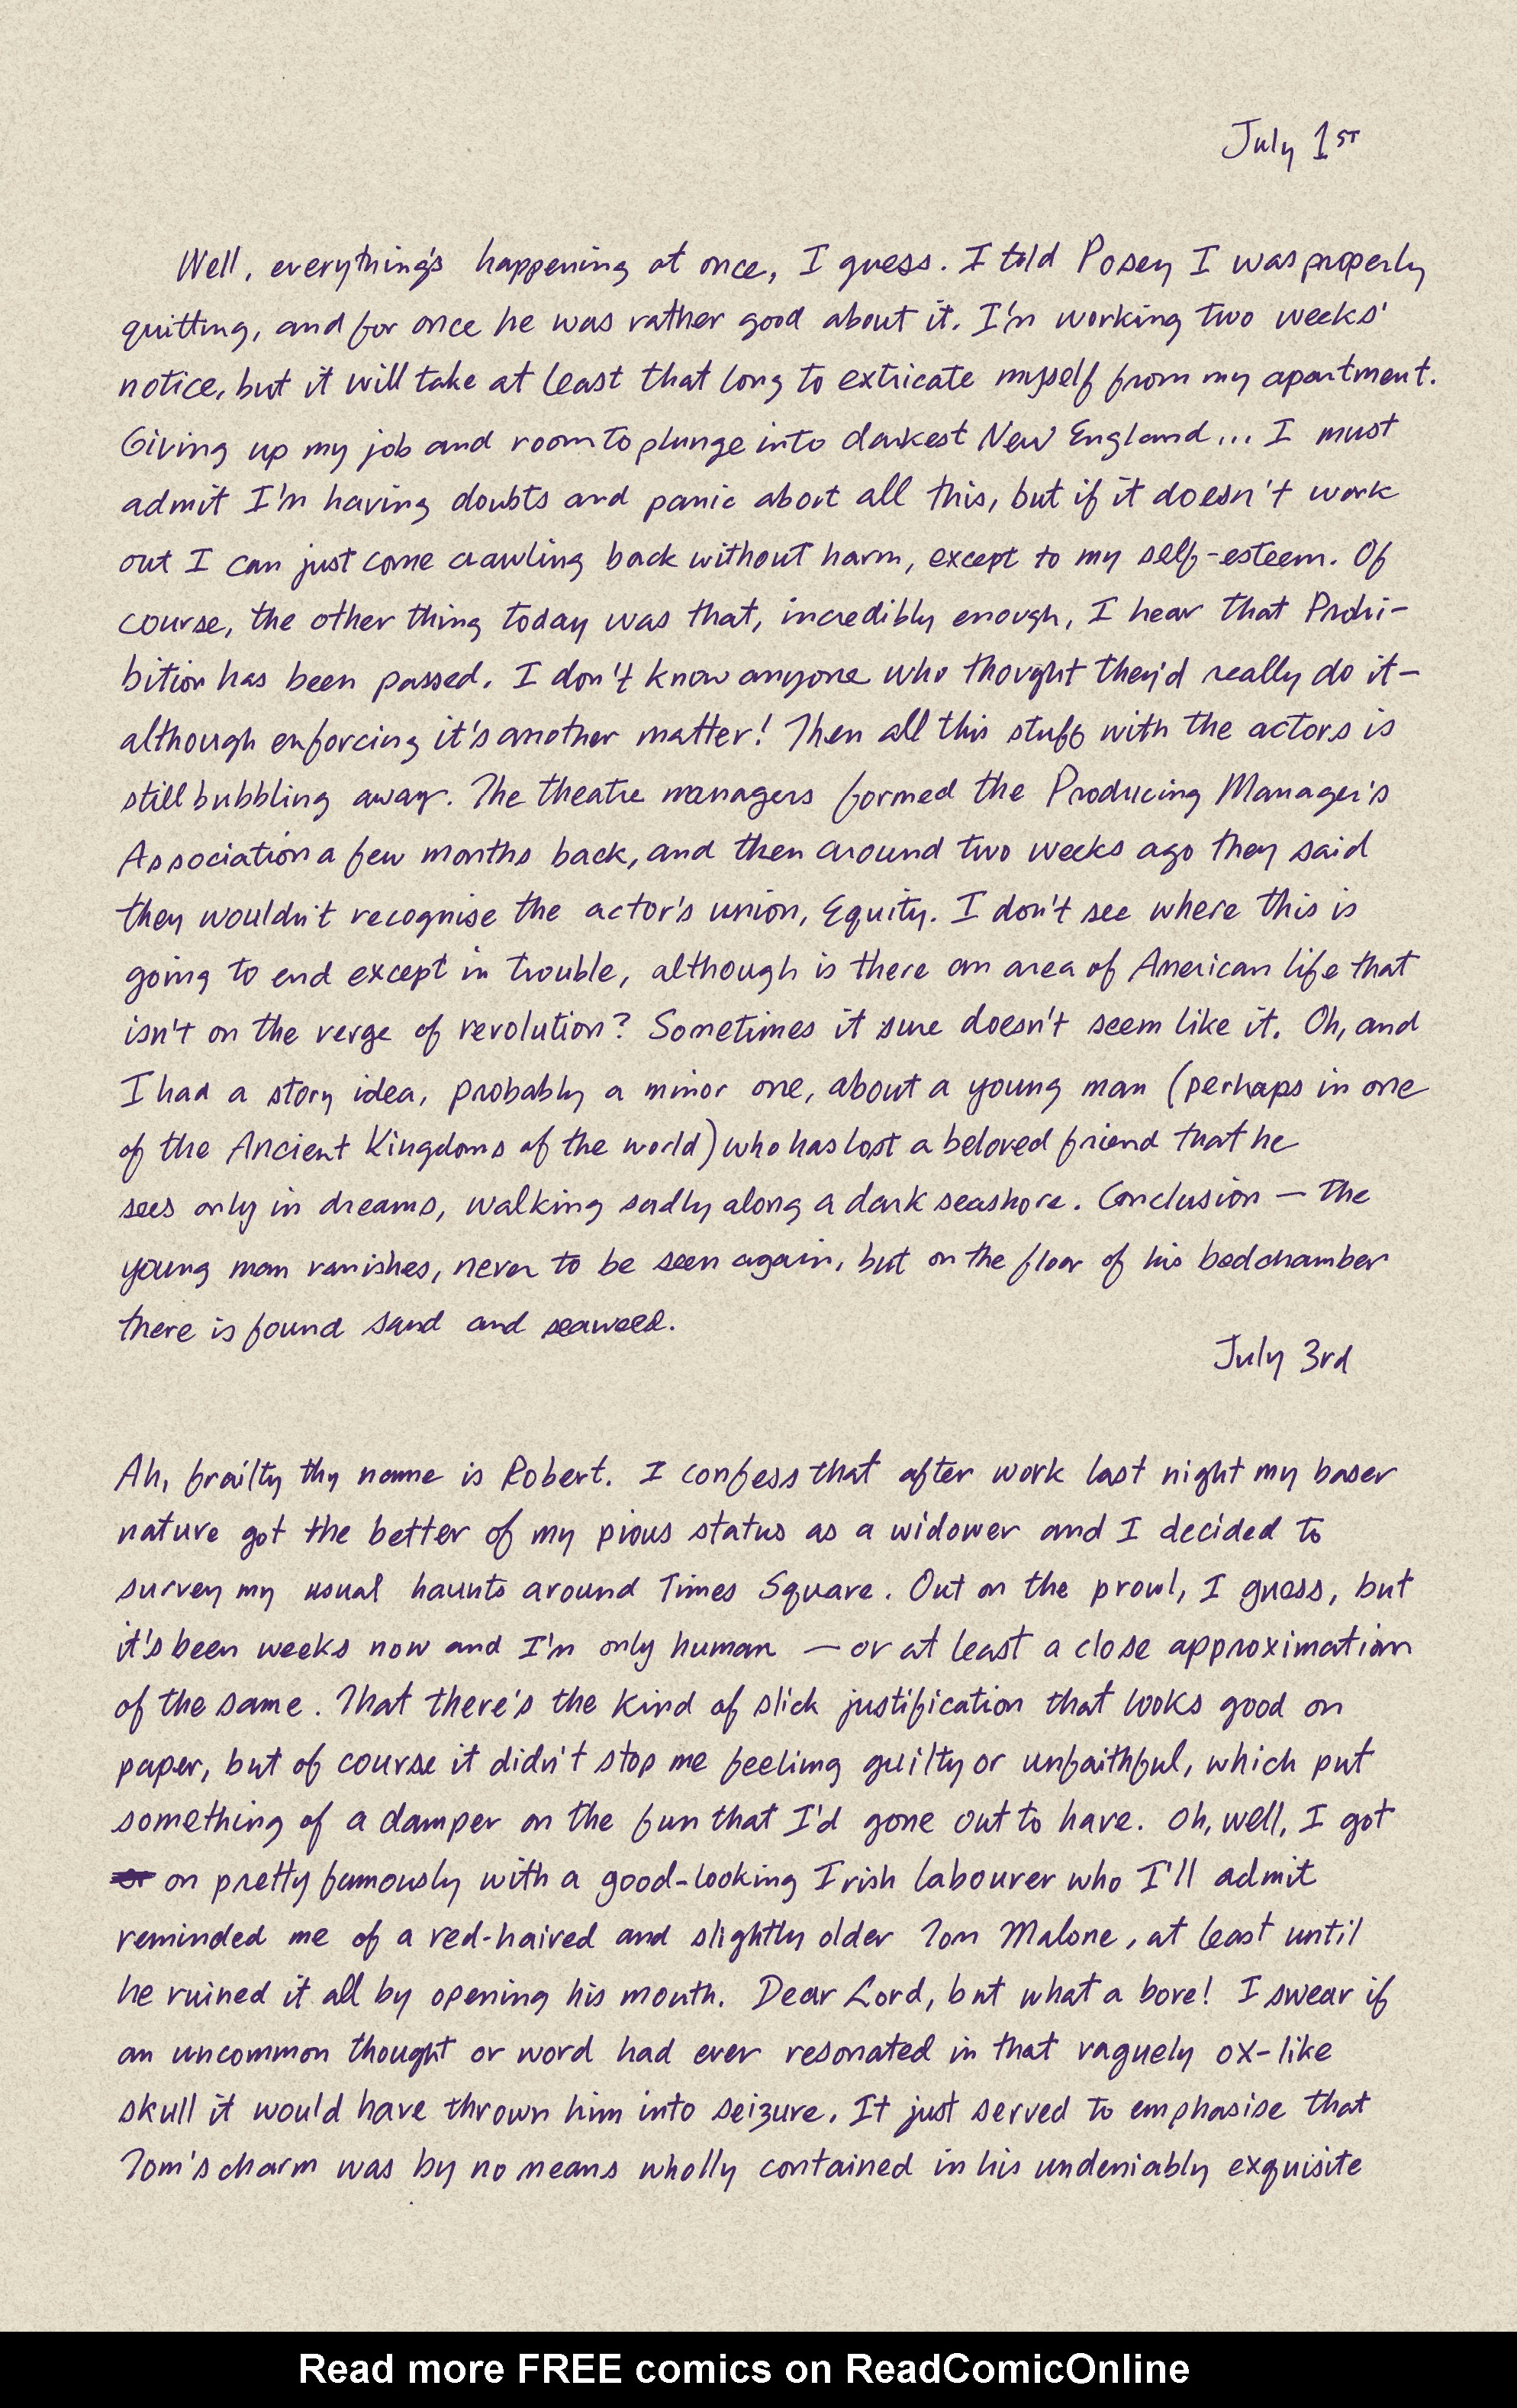 July 1ST
Well, everything's happening at once, I guess. I told Posey I was properly
quitting, and for once he was rather good about it. I'm working two weeks'
notice, but it will take at least that long to extricate myself from my apartment.
Giving up my job and room to plunge into darkest New England... I must
admit I'm having doubts and panic about all this, but if it doesn't work
out I can just come crawling back without harm, except to my self-esteem. Of
course, the other thing today was that, incredibly enough, I hear that Prohi-
bition has been passed. I don't know anyone who thought they'd really do it-
although enforcing it's another matter! Then all this stuff with the actors is
still bubbling away. The theatre managers formed the Producing Manager's
Association a few months back, and then around two weeks ago they said
they wouldn't recognise the actor's union, Equity. I don't see where this is
going to end except in trouble, although is there an area of American life that
isn't on the verge of revolution? Sometimes it sure doesn't seem like it. Oh, and
I had a story idea, probably a minor one, about a young man (perhaps in one
of the Ancient Kingdoms of the world) who has lost a beloved friend that he
sees only in dreams, walking sadly along a dark seashore. Conclusion — the
young man vanishes, never to be seen again, but on the floor of his bedchamber
there is found sand and seaweed.
July 3rd
Ah, frailty thy name is Robert. I confess that after work last night my baser
nature got the better of my pious status as a widower and I decided to
survey my usual haunts around Times Square. Out on the prowl, I guess, but
it's been weeks now and I'm only human — or at least a close approximation
of the same. That there's the kind of slick justification that looks good on
paper, but of course it didn't stop me feeling guilty or unfaithful, which put
something of a damper on the fun that I'd gone out to have. Oh, well, I got
on pretty famously with a good-looking Irish labourer who I'll admit
reminded me of a red-haired and slightly older Tom Malone, at least until
he ruined it all by opening his mouth. Dear Lord, but what a bore! I swear if
an uncommon thought or word had ever resonated in that vaguely ox-like
skull it would have thrown him into seizure. It just served to emphasise that
Tom's charm was by no means wholly contained in his undeniably exquisite
Read more FREE comics on ReadComicOnline